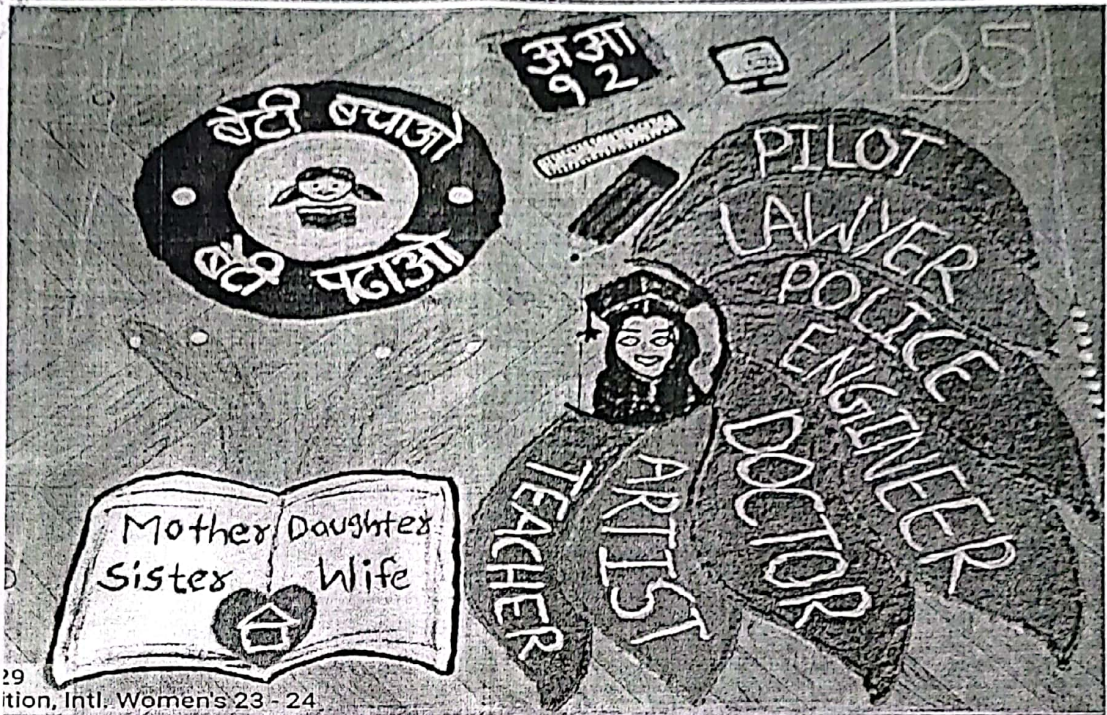 बेटी बचाओ
बेटी पढाओ
अ आ
१ २
05
PILOT
LAWYER
POLICE
ENGINEER
DOCTOR
ARTIST
TEACHER
Mother Daughter
Sister Wife
29
ition, Intl. Women's 23 - 24